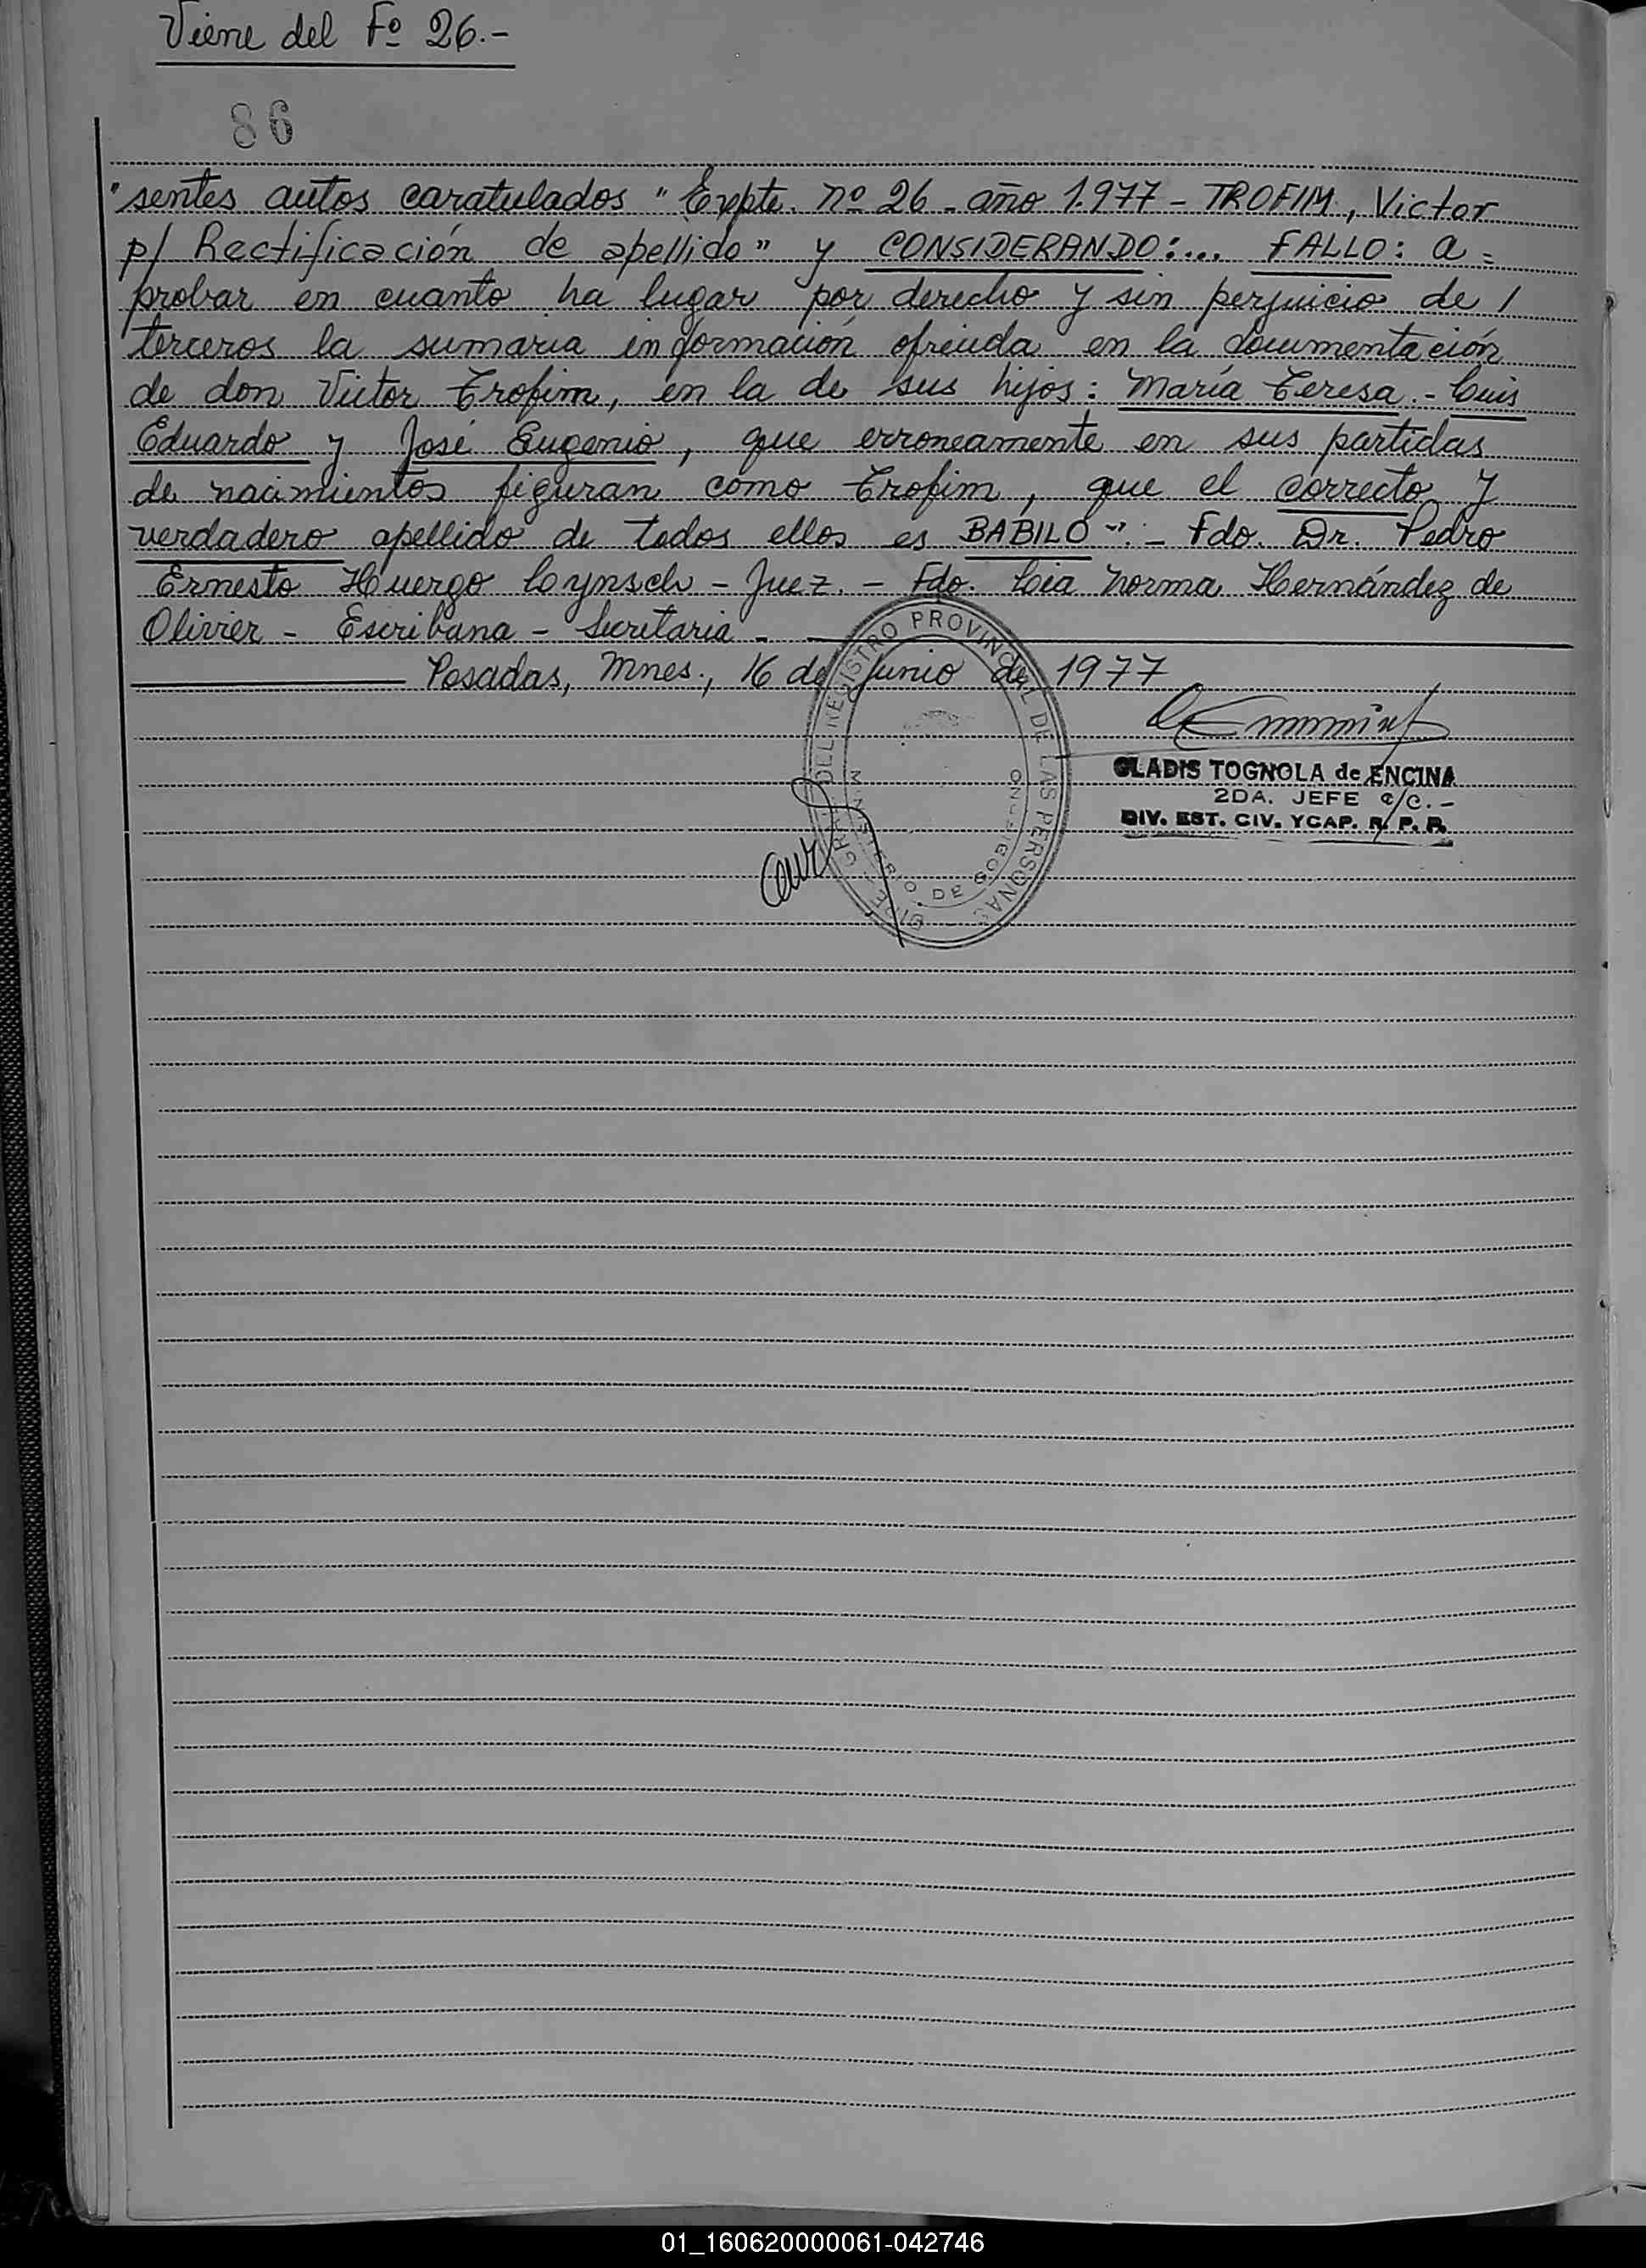 Viene del Fº 26.-
86
"sentes autos caratulados "Expte. nº 26 - año 1.977 - TROFIM, Victor
p/ Rectificación de apellido" y CONSIDERANDO:... FALLO: a=
probar en cuanto ha lugar por derecho y sin perjuicio de /
terceros la sumaria información ofrecida en la documentación
de don Victor Trofim, en la de sus hijos: María Teresa.- Luis
Eduardo y José Eugenio, que erroneamente en sus partidas
de nacimientos figuran como Trofim, que el correcto y
verdadero apellido de todos ellos es BABILO".- Fdo. Dr. Pedro
Ernesto Huergo - Juez. - Fdo. Lia Norma Hernández de
Olivier - Escribana - Secretaria -
Posadas, Mnes., 16 de Junio de 1977
REGISTRO PROVINCIAL DE LAS PERSONAS
MINISTERIO DE GOBIERNO
GLADIS TOGNOLA de ENCINA
2DA. JEFE a/c.-
DIV. EST. CIV. YCAP. R. P. P.
01_160620000061-042746